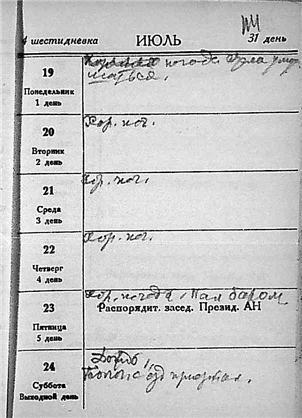 4 шестидневка ИЮЛЬ 31 день
Хорошая погода.
19
Понедельник
1 день
20 Хор. пог.
Вторник
2 день
21 Хор. пог.
Среда
3 день
22 Хор. пог.
Четверг
4 день
Хор. погода,
23 Распорядит. засед. Презид. АН
Пятница
5 день
24 Дождь,
Суббота
Выходной день